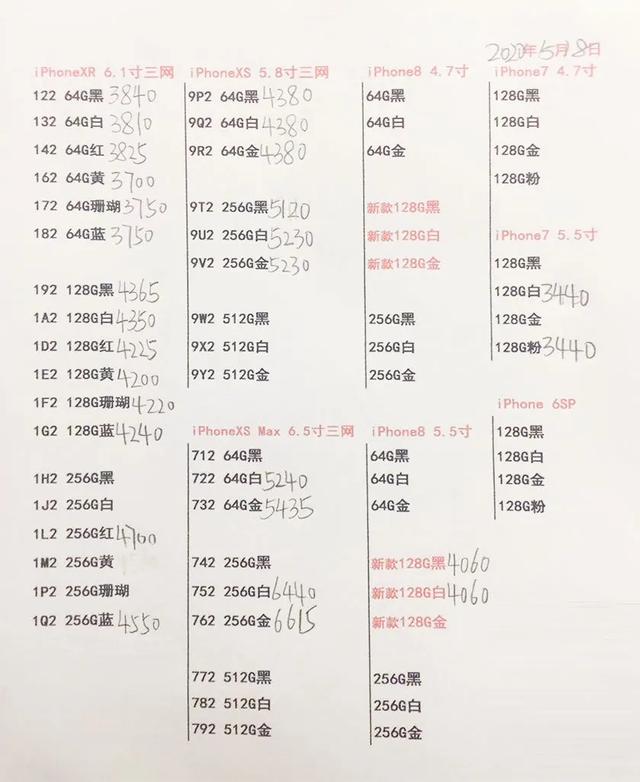 2020年5月8日
iPhoneXR 6.1寸三网
122 64G黑 3840
132 64G白 3810
142 64G红 3825
162 64G黄 3700
172 64G珊瑚 3750
182 64G蓝 3750
192 128G黑 4365
1A2 128G白 4350
1D2 128G红 4225
1E2 128G黄 4200
1F2 128G珊瑚 4220
1G2 128G蓝 4240
1H2 256G黑
1J2 256G白
1L2 256G红 4700
1M2 256G黄
1P2 256G珊瑚
1Q2 256G蓝 4550
iPhoneXS 5.8寸三网
9P2 64G黑 4380
9Q2 64G白 4380
9R2 64G金 4380
9T2 256G黑 5120
9U2 256G白 5230
9V2 256G金 5230
9W2 512G黑
9X2 512G白
9Y2 512G金
iPhoneXS Max 6.5寸三网
712 64G黑
722 64G白 5240
732 64G金 5435
742 256G黑
752 256G白 6440
762 256G金 6615
772 512G黑
782 512G白
792 512G金
iPhone8 4.7寸
64G黑
64G白
64G金
新款128G黑
新款128G白
新款128G金
256G黑
256G白
256G金
iPhone8 5.5寸
64G黑
64G白
64G金
新款128G黑 4060
新款128G白 4060
新款128G金
256G黑
256G白
256G金
iPhone7 4.7寸
128G黑
128G白
128G金
128G粉
iPhone7 5.5寸
128G黑
128G白 3440
128G金
128G粉 3440
iPhone 6SP
128G黑
128G白
128G金
128G粉